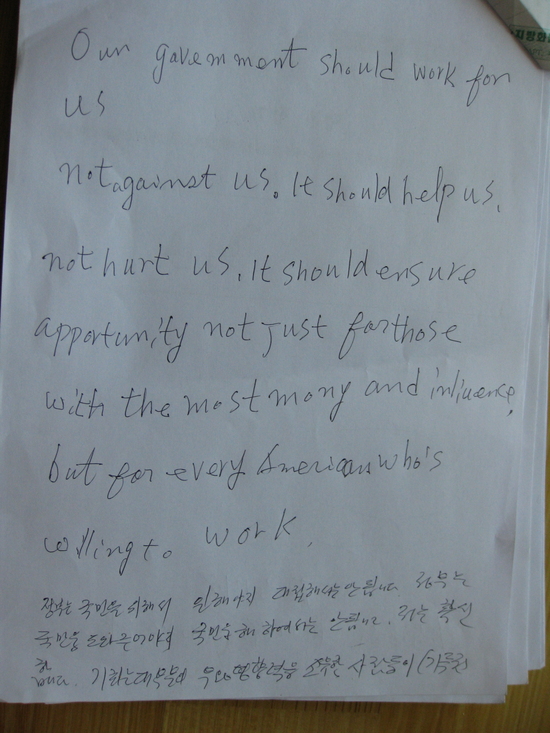 Our government should work for
us
not against us. It should help us,
not hurt us. It should ensure
apportunity not just for those
with the most mony and inliuence,
but for every American who's
willing to work.
정부는 국민을 위해서 일해야지 대립해서는 안됩니다 정부는
국민을 도와주어야 국민을 해 하여서는 안됩니다.
합니다. 기회는 영향력을 소유한 사람들이